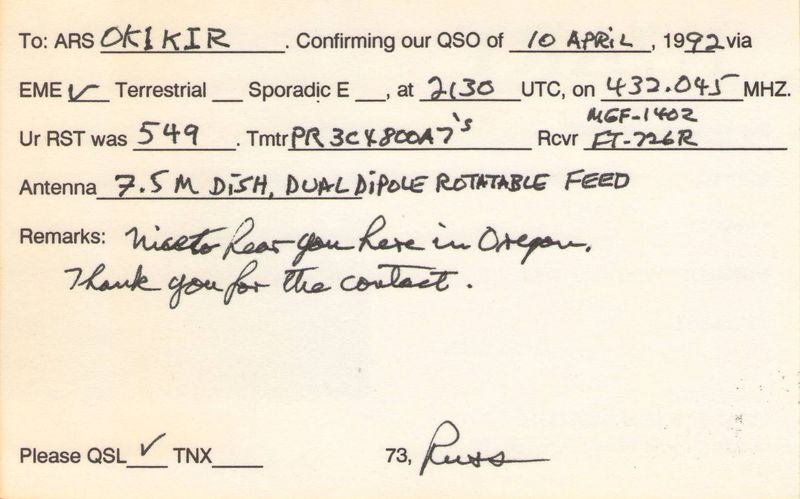 To: ARS OK1KIR. Confirming our QSO of 10 APRIL, 1992 via
EME ✓ Terrestrial __ Sporadic E __, at 2130 UTC, on 432.045 MHZ.
MGF-1402
Ur RST was 549. Tmtr PR 3CX800A7's Rcvr FT-726R
Antenna 7.5 M DISH, DUAL DIPOLE ROTATABLE FEED
Remarks: Nice to hear you here in Oregon.
Thank you for the contact.
Please QSL ✓ TNX ____ 73, Russ